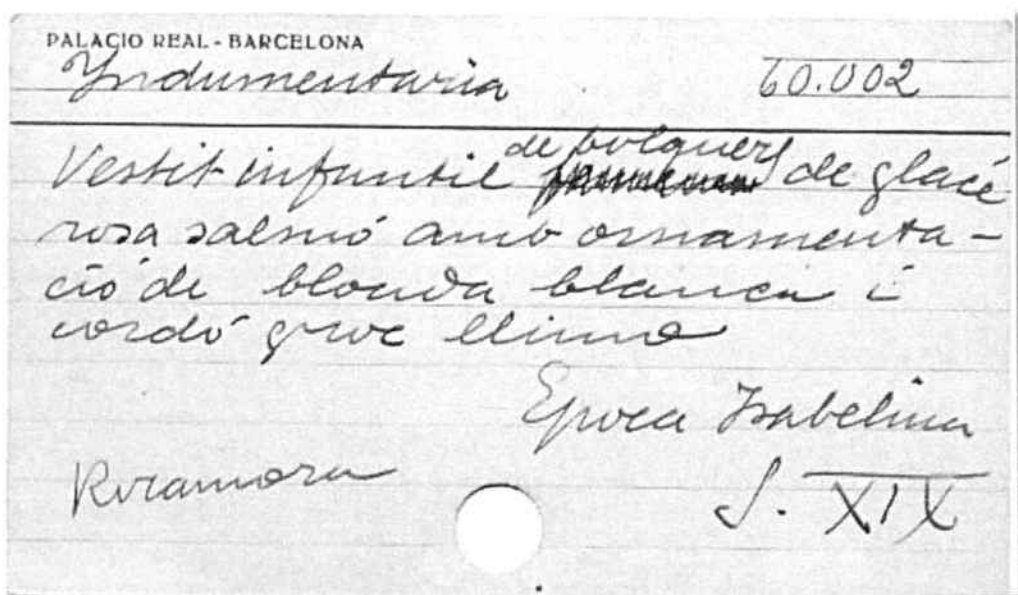 PALACIO REAL - BARCELONA
Yndumentaria 60.002
Vestit infantil de bolquers de glacé
rosa salmó amb ornamenta-
ció de blonda blanca i
cordó groc llimo
Epoca Isabelina
Rocamora S. XIX